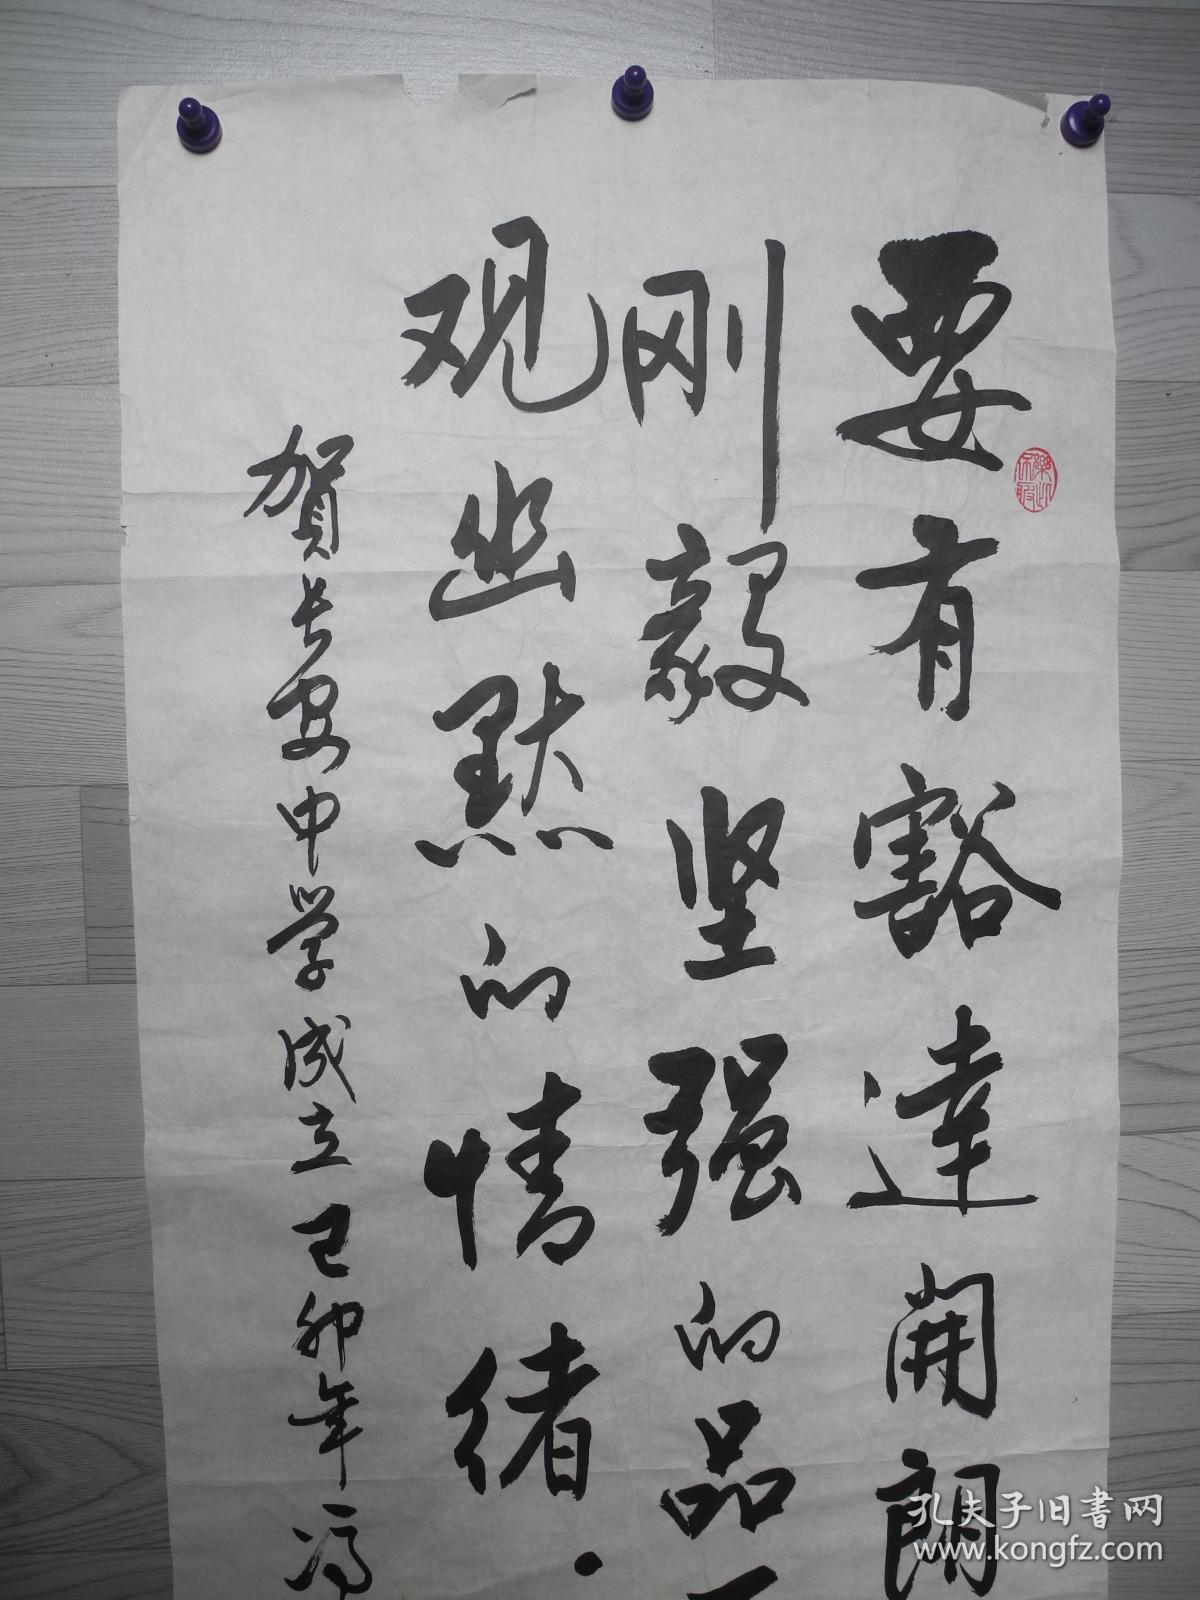 要有豁達開朗
刚毅坚强的品
观幽默的情绪.
贺长安中学成立己卯年冯
孔夫子旧书网
www.kongfz.com